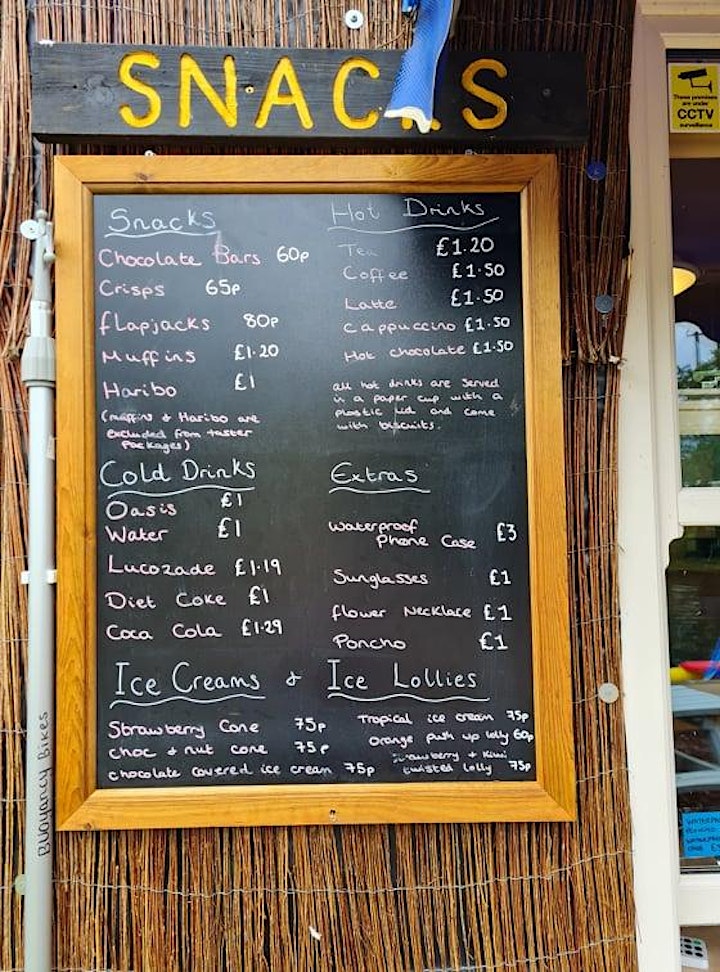 SNACKS
Snacks
Chocolate Bars 60p
Crisps 65p
flapjacks 80p
Muffins £1.20
Haribo £1
(muffins & Haribo are
excluded from taster
packages)
Cold Drinks
Oasis £1
Water £1
Lucozade £1.19
Diet Coke £1
Coca Cola £1.29
Hot Drinks
Tea £1.20
Coffee £1.50
Latte £1.50
Cappuccino £1.50
Hot chocolate £1.50
all hot drinks are served
in a paper cup with a
plastic lid and come
with biscuits.
Extras
Waterproof
Phone Case £3
Sunglasses £1
flower Necklace £1
Poncho £1
Ice Creams & Ice Lollies
Strawberry Cone 75p
choc & nut cone 75p
chocolate covered ice cream 75p
Tropical ice cream 75p
orange push up lolly 60p
Strawberry & Kiwi
twisted lolly 75p
Buoyancy Bikes
These premises
are under
CCTV
surveillance